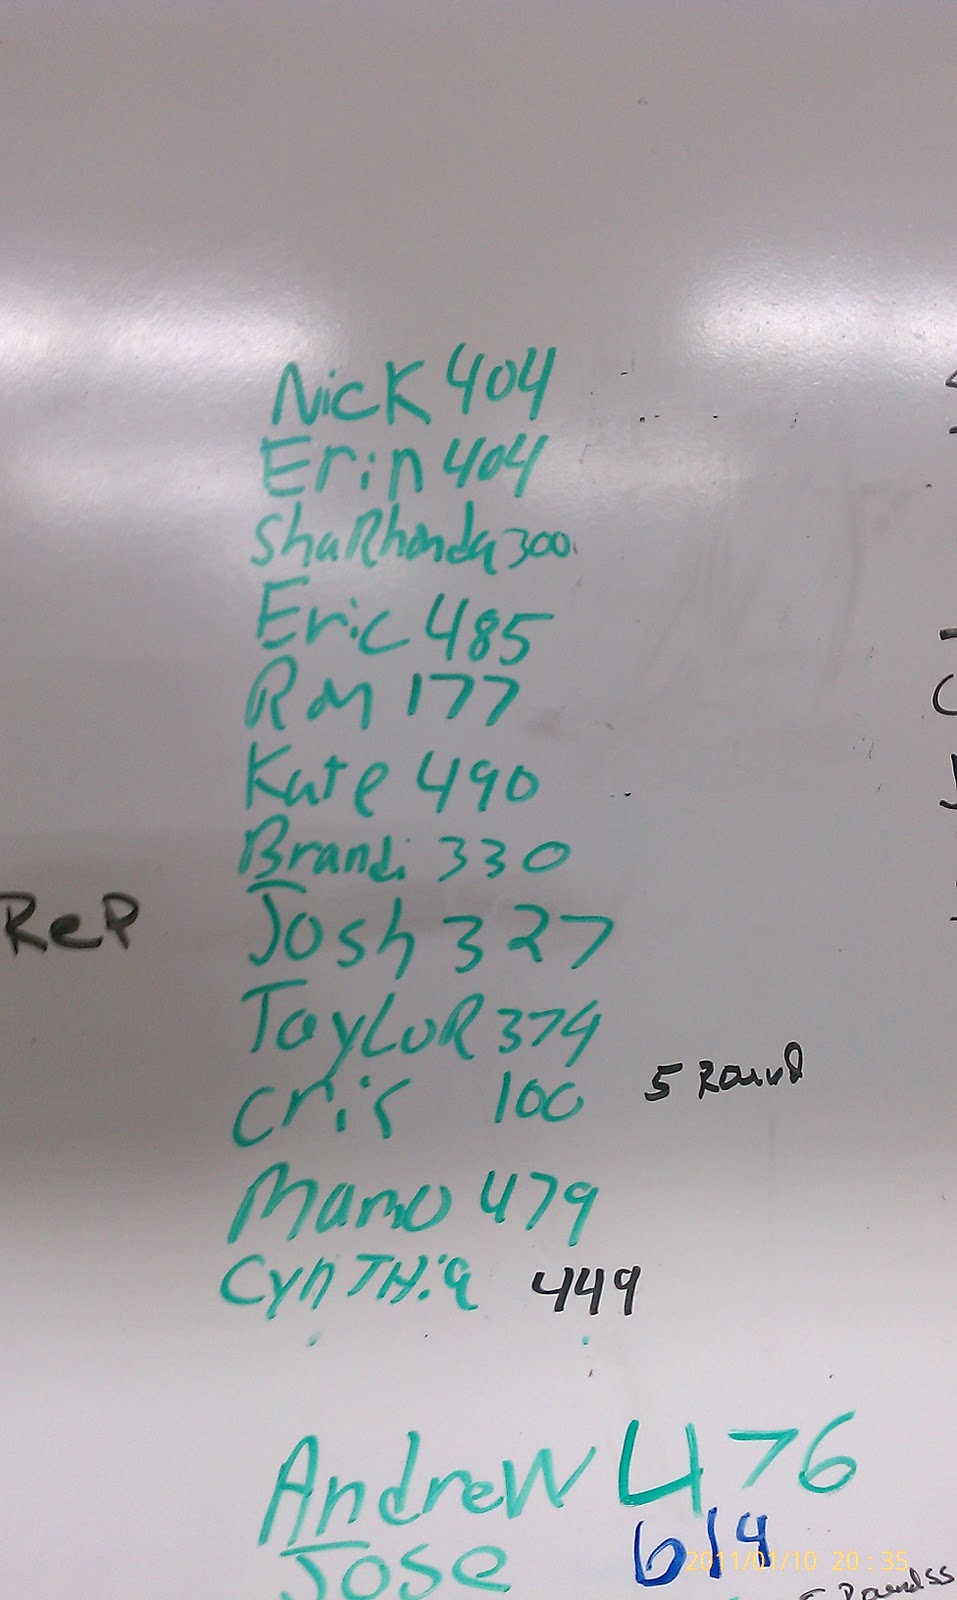 Nick 404
Erin 404
ShaRhonda 300
Eric 485
Ron 177
Kate 490
Brandi 330
ReP
Josh 327
TayLoR 374
Cris 100 5 Round
Mamo 479
CynTHia 449
Andrew 476
Jose 614
2011/01/10 20:35